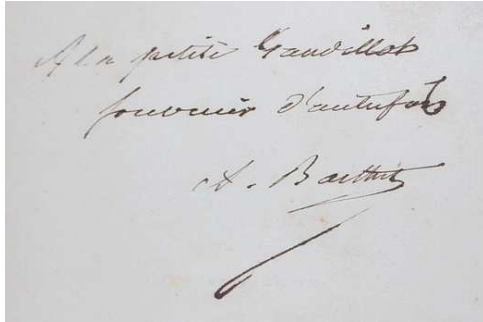 A la petite Gaudillot
souvenir d'autrefois
A. Barthet